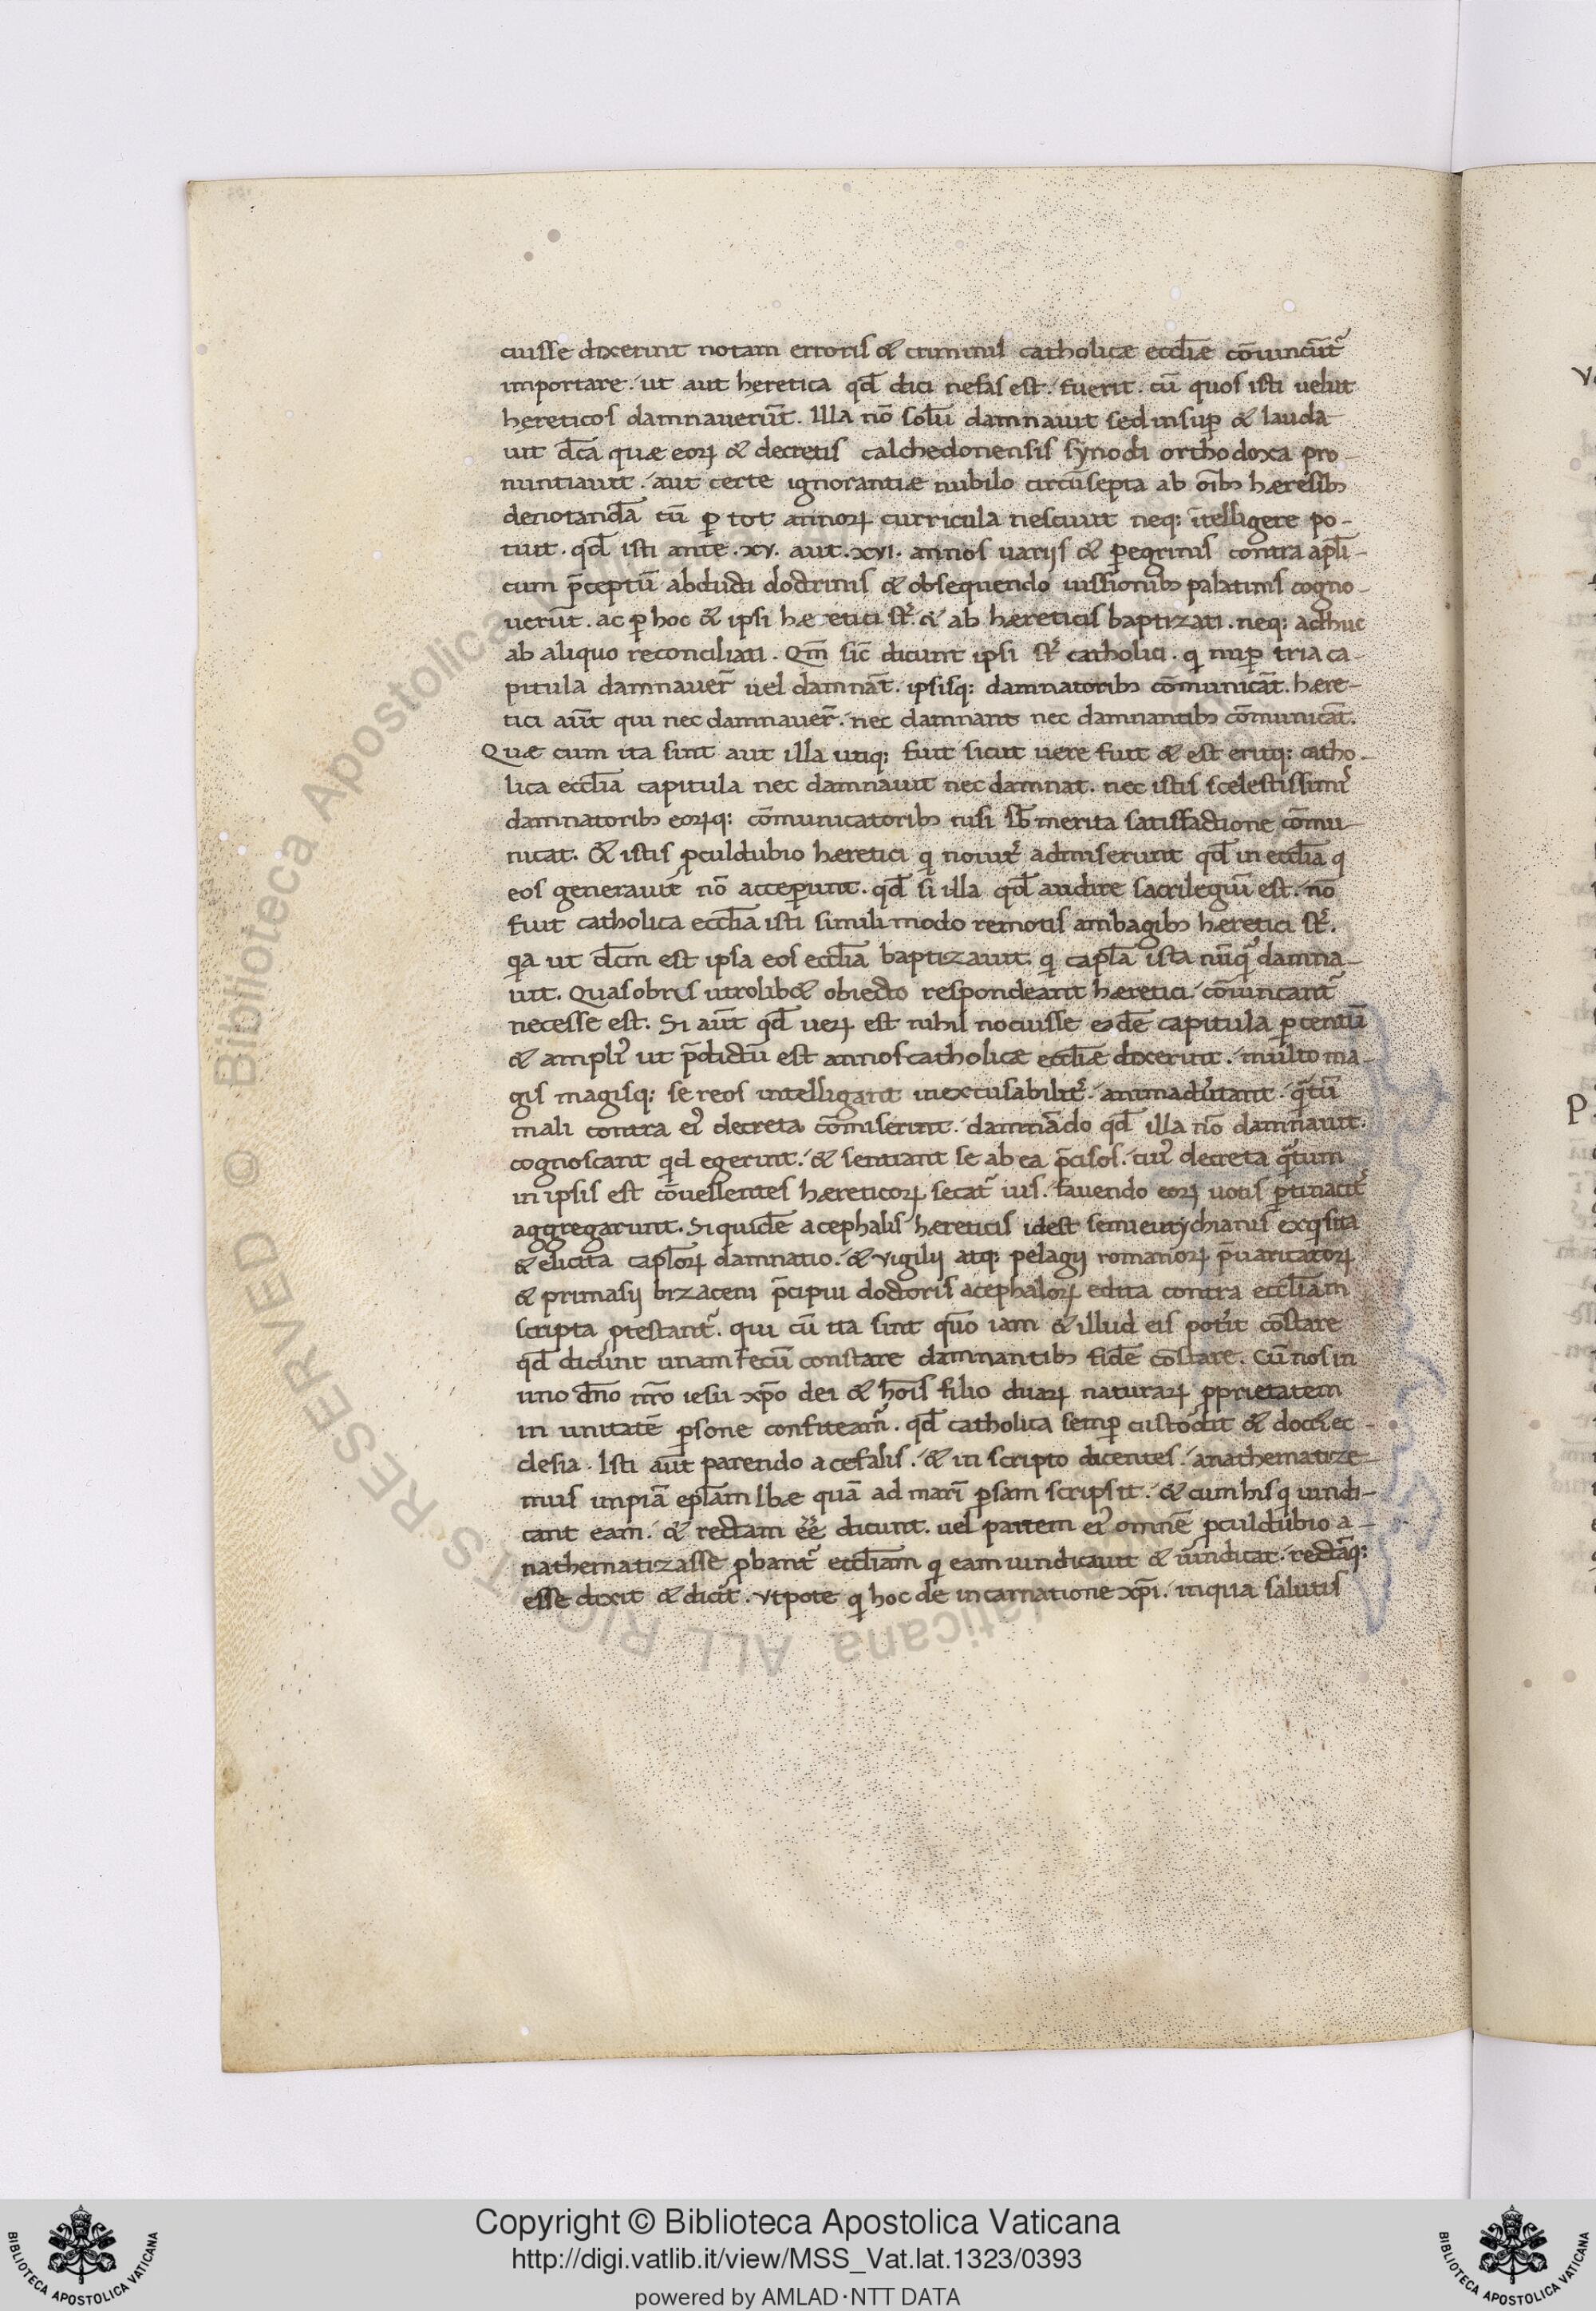 cuisse dixerint notam erroris & criminis catholicæ eccl̄iæ cōuincūt᷑
importare. ut aut heretica qd̄ dici nefas est. fuerit. cū quos isti uelut
hereticos damnauerūt. Illa nō solū damnauit sed insup̄ & lauda
uit dc̄a quæ eoꝝ & decretis calchedonensis synodi orthodoxa pro-
nuntiauit. aut certe ignorantiæ nubilo circūsepta ab oīb; hæresib;
denotanda cū ꝑ tot annoꝝ curricula nesciuit neq: ītelligere po-
tuit. qd̄ isti ante .xv. aut .xvi. annos uarijs & ꝑegrinis contra apl̄i-
cum p̄ceptū abducti doctrinis & obsequendo iussionib; palatinis cogno-
uerūt. ac ꝑ hoc & ipsi hæretici st᷑. & ab hæreticis baptizati. neq: adhuc
ab aliquo reconciliati. Qm̄ sic̄ dicunt ipsi st᷑ catholici. q nup̄ tria ca-
pitula damnauer̄ uel damnāt. ipsisq: damnatorib; cōmunicāt. hære-
tici aūt qui nec damnauer̄. nec damnant nec damnantib; cōmunicāt.
Quæ cum ita sint aut illa utiq: fuit sicut uere fuit & est eritq: catho-
lica eccl̄ia capitula nec damnauit nec damnat. nec istis scelestissimis
damnatorib; eoꝝq: cōmunicatorib; nisi sb̄ merita satisfactione cōmu-
nicat. & istis ꝓculdubio hæretici q nouit᷑ admiserunt qd̄ in eccl̄ia q
eos generauit nō acceperunt. qd̄ si illa qd̄ audire sacrilegiū est. nō
fuit catholica eccl̄ia isti simili modo remotis ambagib; hæretici st᷑.
qa ut dc̄m est ipsa eos eccl̄ia baptizauit. q capl̄a ista nūq̄ damna-
uit. Quasobres utrolib& obiecto respondeant hæretici. cōuincant᷑
necesse est. Si aūt qd̄ ueꝝ est nihil nocuisse eadē capitula ꝑ centū
& ampli᷒ ut p̄dictū est annos catholicæ eccl̄iæ dixerint. multo ma-
gis magisq: se reos intelligant inexcusabilit᷑. animaduertant. q̄tū
mali contra ei᷒ decreta cōmiserint. damnādo qd̄ illa nō damnauit.
cognoscant qd egerint. & sentiant se ab ea p̄cisos. cui᷒ decreta q̄tum
in ipsis est cōuellentes hæreticoꝝ secat᷑ uis. fauendo eoꝝ uotis ꝑtinacit᷑
aggregarunt. Siquidē acephalis hereticis idest semieutychianis exqsita
& elicita capl̄oꝝ damnatio. & vigilij atq: pelagij romanoꝝ p̄uaricatoꝝ
& primasij bizaceni p̄cipui doctoris acephaloꝝ edita contra eccl̄iam
scripta ꝓtestant᷑. qui cū ita sint quō iam & illud eis pot᷑it cōstare
qd̄ dicunt unam secū constare damnantib; fidē cōstare. Cū nos in
uno dn̄o nr̄o iesu xp̄o dei & hoīs filio duaꝝ naturaꝝ ꝓprietatem
in unitatē ꝑsone confiteam᷑. qd̄ catholica semp̄ custodit & docet ec-
clesia. Isti aūt parendo acefalis. & in scripto dicentes. anathematize-
mus impiā epl̄am Ibæ quā ad marī ꝑsam scripsit. & cum his q uindi-
cant eam. & rectam eē dicunt. uel partem ei᷒ omnē ꝓculdubio a-
nathematizasse ꝓbant᷑ eccl̄iam q eam uindicauit & uindicat. rectāq:
esse dixit & dicit. Vtpote q hoc de incarnatione xp̄i. in qua salutis
Copyright © Biblioteca Apostolica Vaticana
http://digi.vatlib.it/view/MSS_Vat.lat.1323/0393
powered by AMLAD·NTT DATA